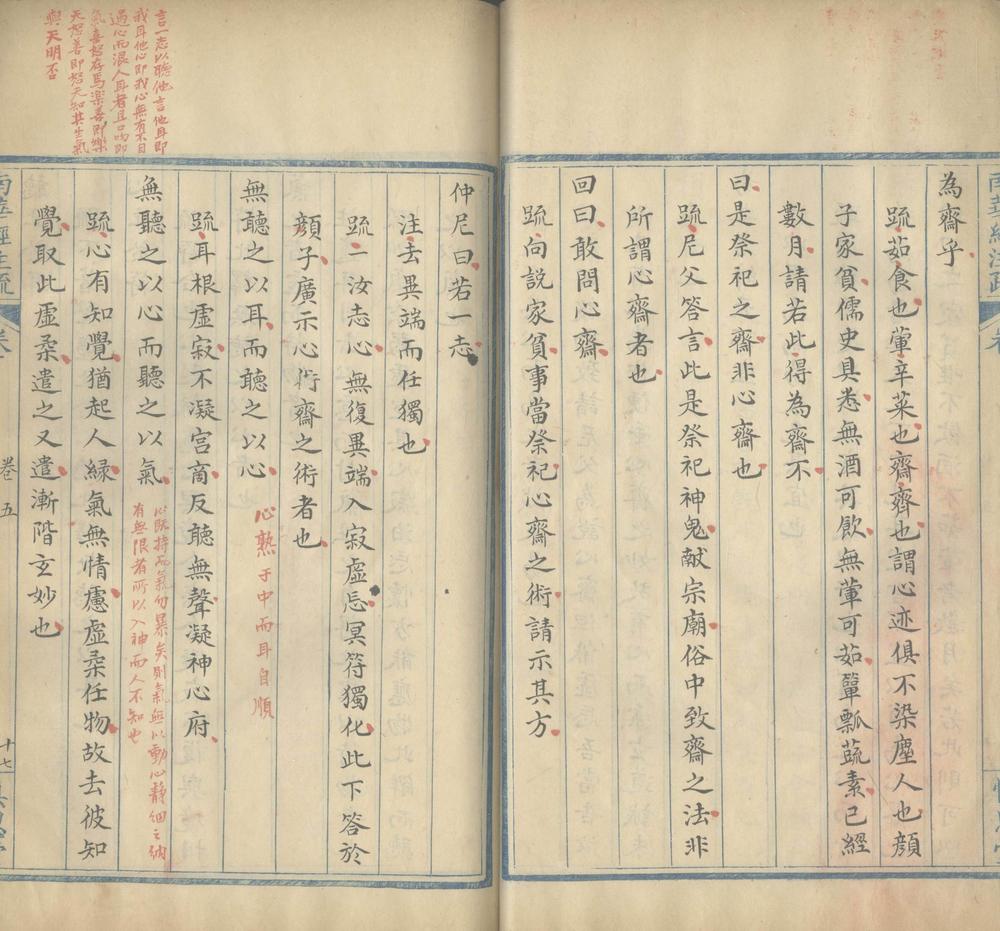 為齋乎
疏茹食也葷辛菜也齋齊也謂心迹俱不染塵人也顔
子家貧儒史具悉無酒可飲無葷可茹簞瓢蔬素已經
數月請若此得為齋不
曰是祭祀之齋非心齋也
疏尼父答言此是祭祀神鬼献宗廟俗中致齋之法非
所謂心齋者也
回曰敢問心齋
疏向説家貧事當祭祀心齋之術請示其方
仲尼曰若一志
注去異端而任獨也
疏一汝志心無復異端入寂虛忘冥符獨化此下答於
顔子廣示心術齋之術者也
無聽之以耳而聽之以心
心熟于中而耳自順
疏耳根虛寂不凝宮商反聽無聲凝神心府
無聽之以心而聽之以氣
心既持而氣勿暴矣則氣無以動心靜細之納
有無限者所以入神而人不知也
疏心有知覺猶起人緣氣無情慮虛柔任物故去彼知
覺取此虛柔遣之又遣漸階玄妙也
言一志以聽他言他耳即
我耳他心即我心無有不自
過心而浪人耳者且口吻即
氣喜怒存焉樂善即樂
天怒善即怒天知其生氣
與天明否
南華經注疏
卷五
十七